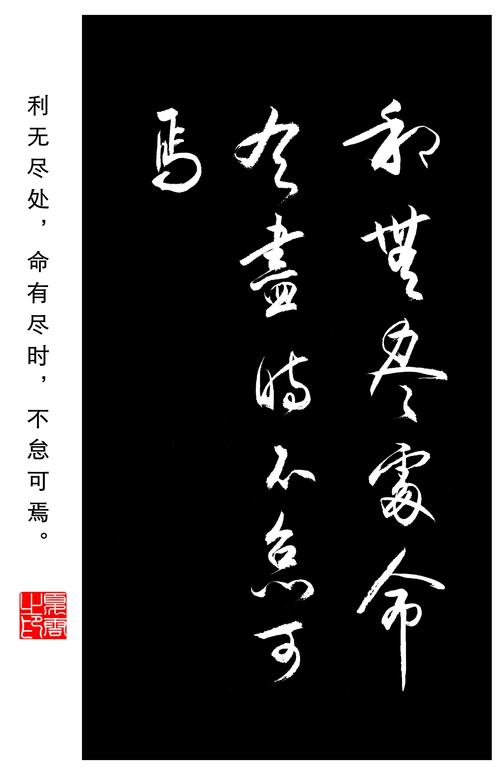 利無尽處命
有盡時不怠可
焉
利无尽处，命有尽时，不怠可焉。